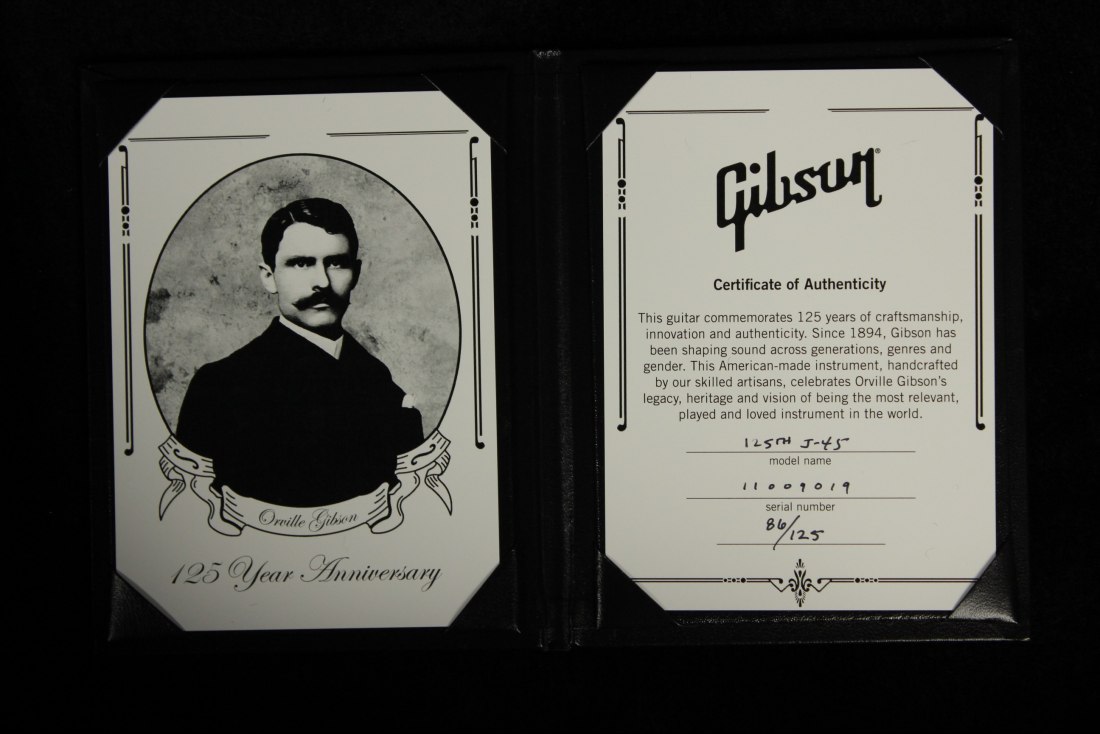 Orville Gibson
125 Year Anniversary
Gibson®
Certificate of Authenticity
This guitar commemorates 125 years of craftsmanship,
innovation and authenticity. Since 1894, Gibson has
been shaping sound across generations, genres and
gender. This American-made instrument, handcrafted
by our skilled artisans, celebrates Orville Gibson's
legacy, heritage and vision of being the most relevant,
played and loved instrument in the world.
125TH J-45
model name
11009019
serial number
86/125